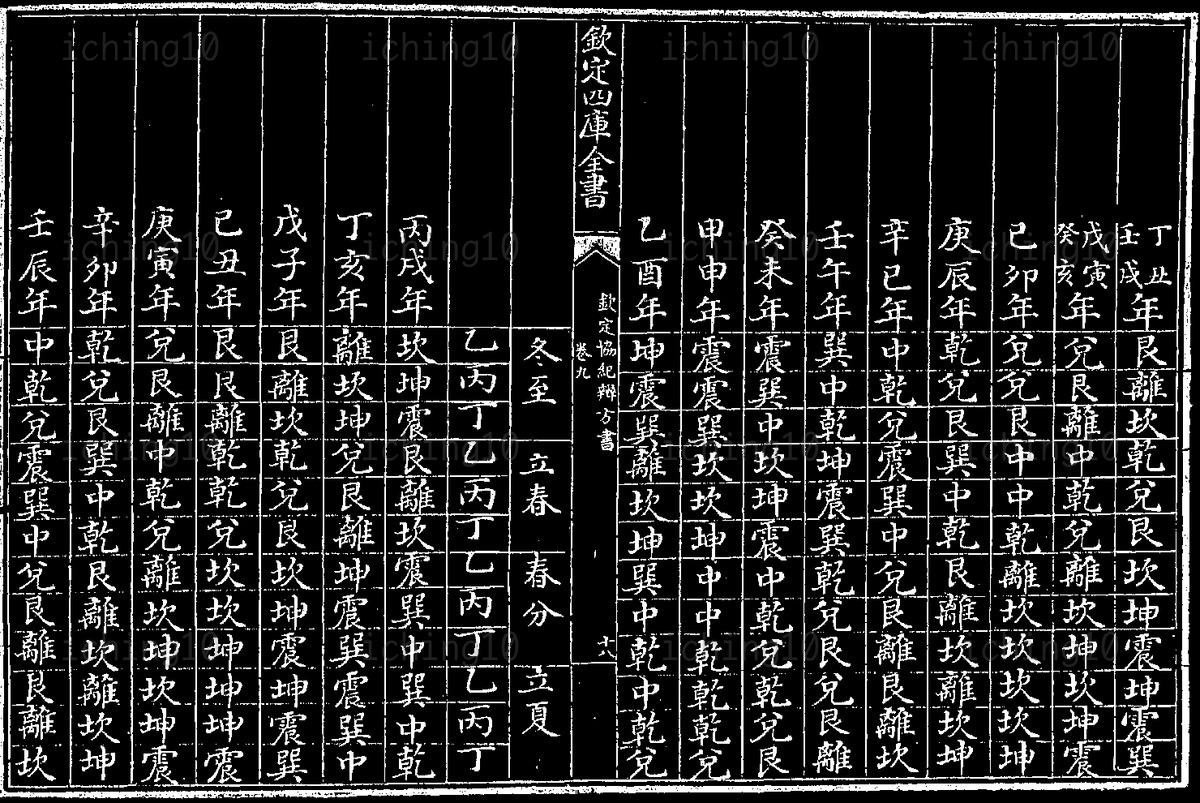 丁丑
壬戌
年艮離坎乾兌艮坎坤震坤震巽
戊寅
癸亥
年兌艮離中乾兌離坎坤坎坤震
己卯年兌兌艮中中乾離坎坎坎坎坤
庚辰年乾兌艮巽中乾艮離坎離坎坤
辛巳年中乾兌震巽中兌艮離艮離坎
壬午年巽中乾坤震巽乾兌艮兌艮離
癸未年震巽中坎坤震中乾兌乾兌艮
申申年震震巽坎坎坤中中乾乾乾兌
乙酉年坤震巽離坎坤巽中乾中乾兌
欽定四庫全書
欽定協紀辨方書
卷九
十八
冬至 立春 春分 立夏
乙丙丁乙丙丁乙丙丁乙丙丁
丙戌年坎坤震艮離坎震巽中巽中乾
丁亥年離坎坤兌艮離坤震巽震巽中
戊子年艮離坎乾兌艮坎坤震坤震巽
己丑年艮艮離乾乾兌坎坎坤坤坤震
庚寅年兌艮離中乾兌離坎坤坎坤震
辛卯年乾兌艮巽中乾艮離坎離坎坤
壬辰年中乾兌震巽中兌艮離艮離坎
iching10 iching10 iching10 iching10
iching10 iching10 iching10 iching10
iching10 iching10 iching10 iching10
iching10 iching10 iching10 iching10